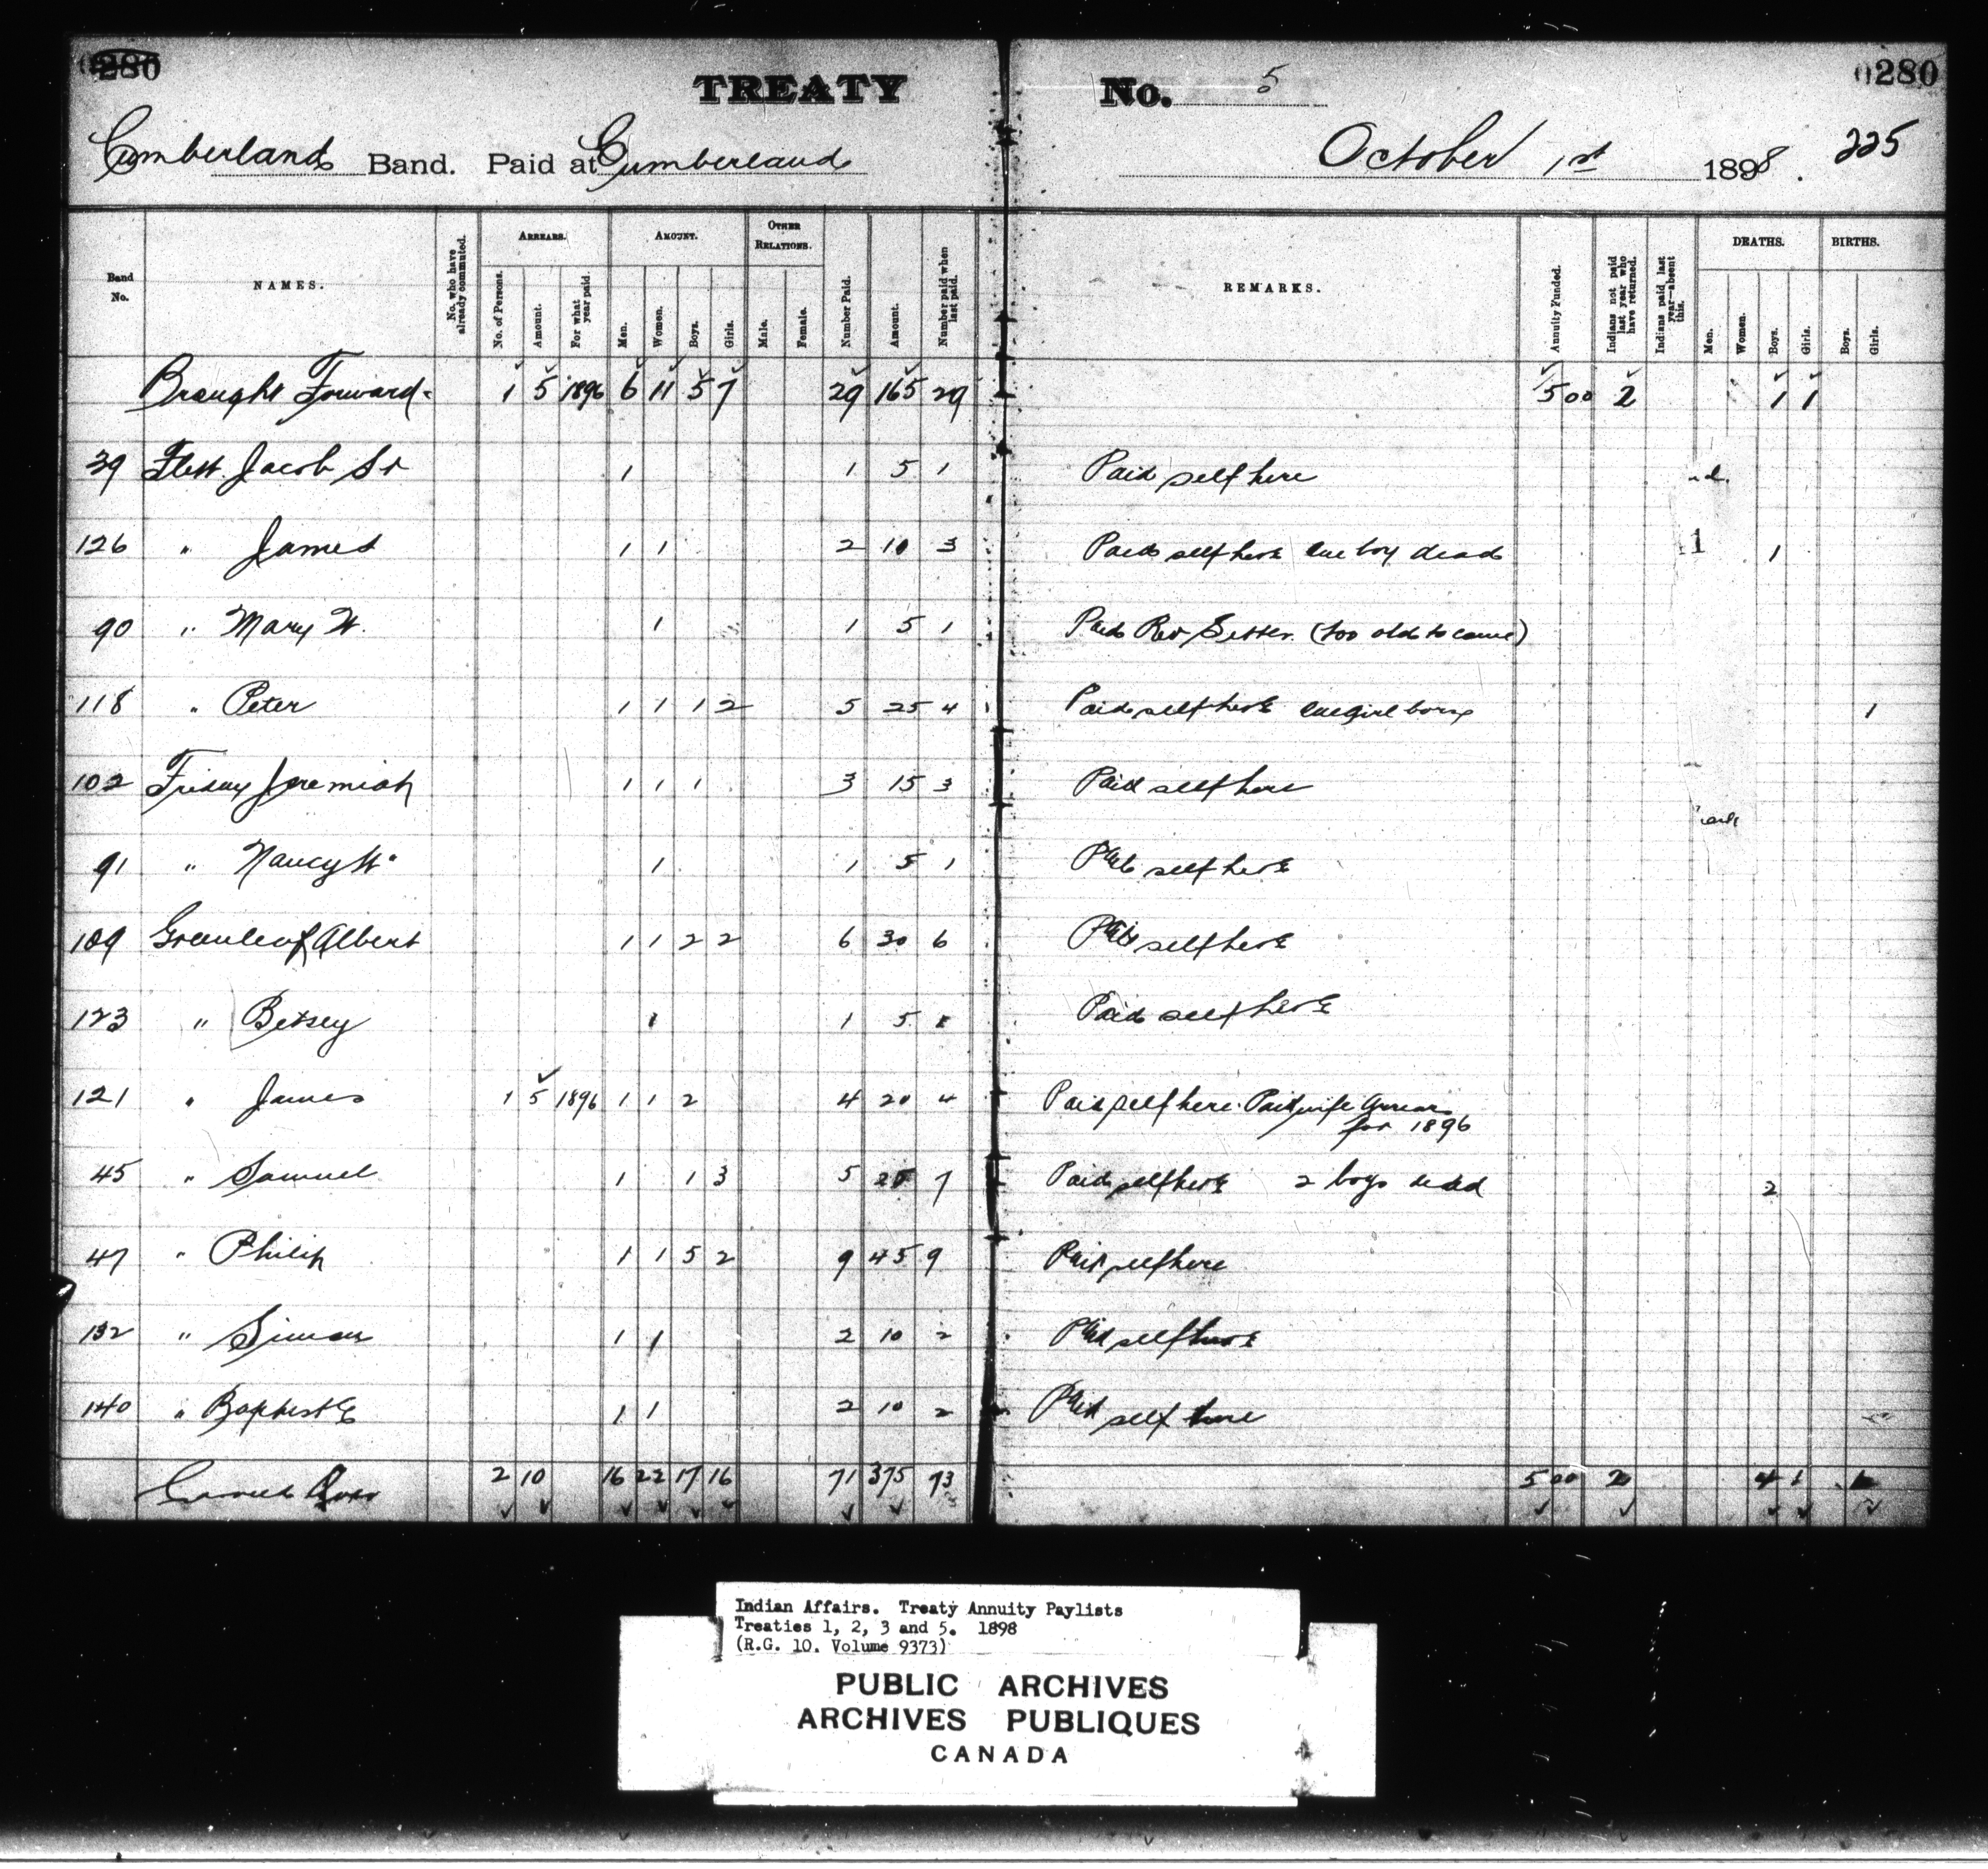 0280 0280
TREATY No. 5
Cumberland Band. Paid at Cumberland October 1st 1898. 225
Band No. NAMES. No. who have already commuted. ARREARS. No. of Persons. Amount. For what year paid. AMOUNT. Men. Women. Boys. Girls. OTHER RELATIONS. Male. Female. Number Paid. Amount. Number paid when last paid. REMARKS. Annuity Funded. Indians not paid last year who have returned. Indians paid last year—absent this. DEATHS. Men. Women. Boys. Girls. BIRTHS. Boys. Girls.
Brought Forward 1 5 1896 6 11 5 7 29 165 29 5 00 2 1 1
39 Flett Jacob Sr 1 1 5 1 Paid self here
126 " James 1 1 2 10 3 Paid self here one boy dead 1
90 " Mary W. 1 1 5 1 Paid Rev Sister. (too old to come)
118 " Peter 1 1 1 2 5 25 4 Paid self here one girl born 1
102 Friday Jeremiah 1 1 1 3 15 3 Paid self here
91 " Nancy W. 1 1 5 1 Paid self here
109 Greenleaf Albert 1 1 2 2 6 30 6 Paid self here
123 " Betsey 1 1 5 1 Paid self here
121 " James 1 5 1896 1 1 2 4 20 4 Paid self here. Paid wife Arrears
for 1896
45 " Samuel 1 1 3 5 25 7 Paid self here 2 boys dead 2
47 " Philip 1 1 5 2 9 45 9 Paid self here
132 " Simon 1 1 2 10 2 Paid self here
140 " Baptiste 1 1 2 10 2 Paid self here
Carried Over 2 10 16 22 17 16 71 375 73 5 00 2 4 1 1
Indian Affairs. Treaty Annuity Paylists
Treaties 1, 2, 3 and 5. 1898
(R.G. 10. Volume 9373)
PUBLIC ARCHIVES
ARCHIVES PUBLIQUES
CANADA